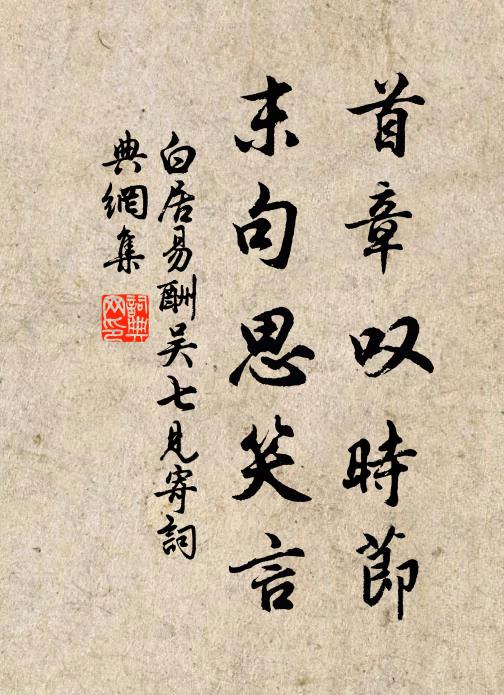 首章叹時節
末句思笑言
白居易酬吴七見寄詞
典網集
詞典網印